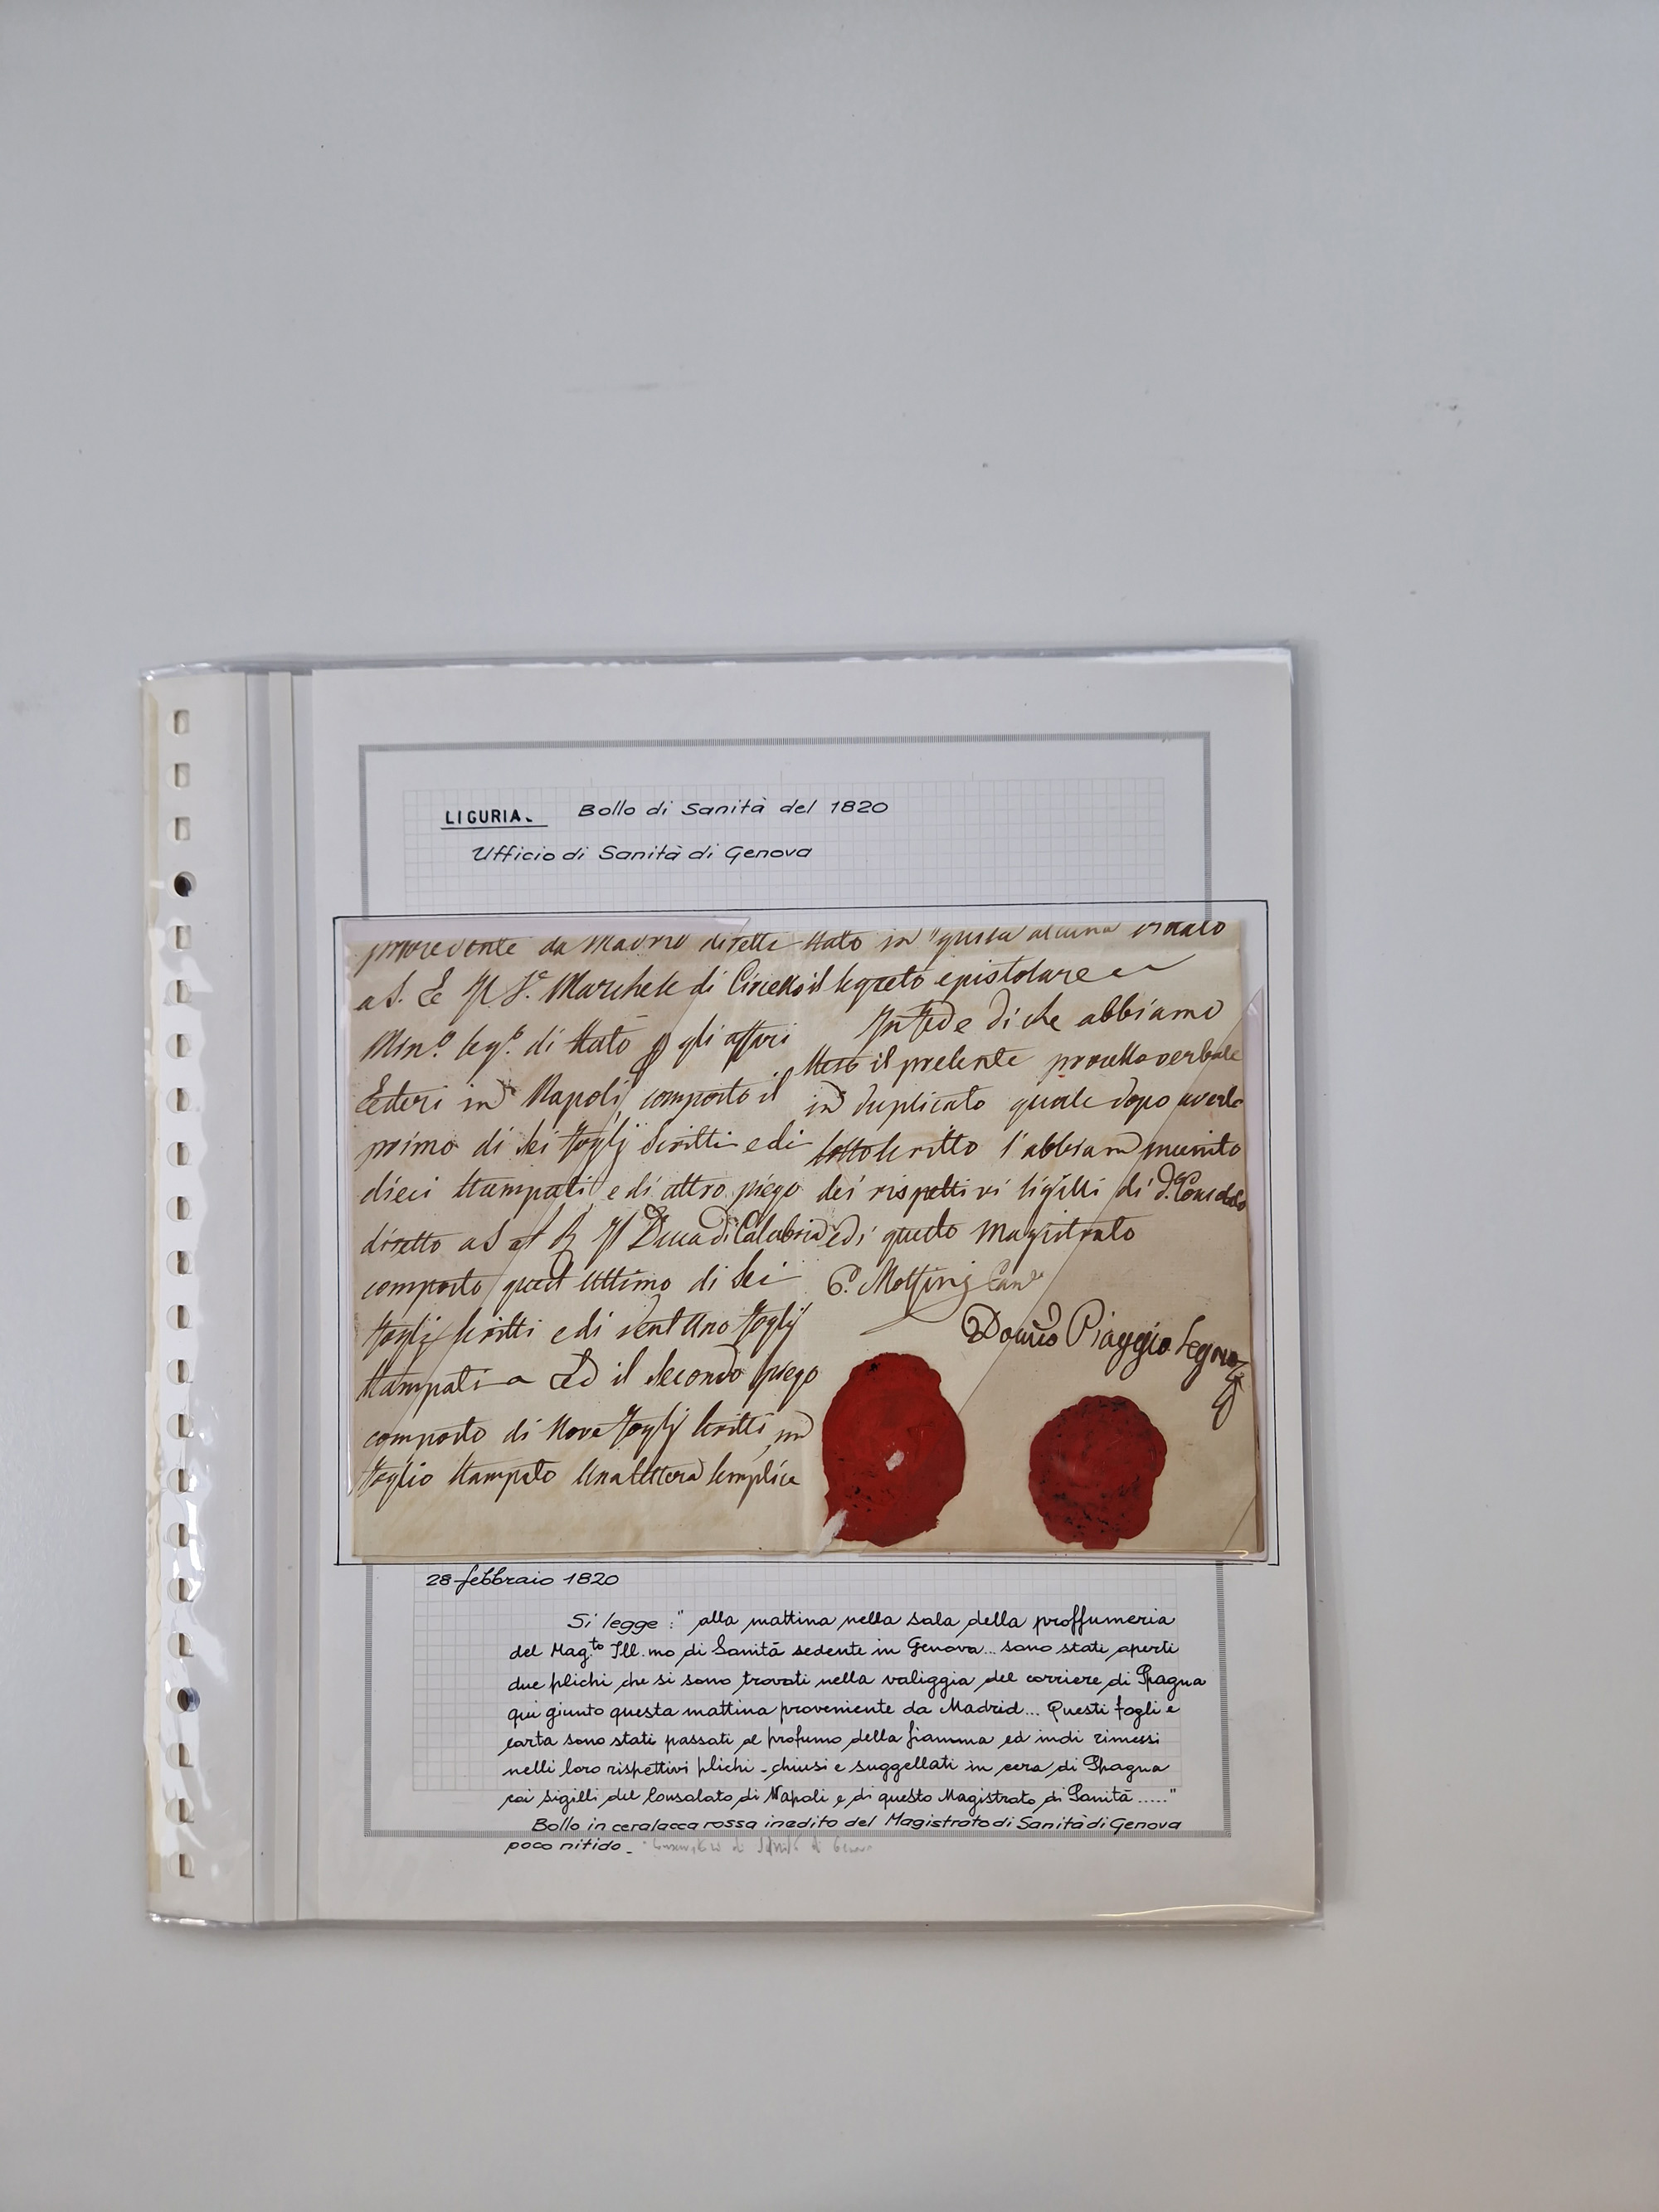 LIGURIA. Bollo di Sanità del 1820
Ufficio di Sanità di Genova
da Madrid
a S. E. Il S.r Marchese di Circello
Min.o Seg.o di Stato gli affari
Esteri in Napoli, composto il
primo di Sei foglj Scritti e di
dieci Stampati, e di altro piego
diretto a S A R Il Duca di Calabria
composto quest Ultimo di Sei
foglj Scritti e di Vent Uno foglj
Stampati Ed il Secondo piego
composto di Nove foglj Scritti, un
foglio Stampato Una lettera Semplice
stato in guisa alcuna violato
il Segreto epistolare
In fede di che abbiamo
steso il presente processo verbale
in duplicato quale dopo averlo
sottoscritto l'abbiam munito
dei rispettivi Sigilli di d.o Consolato
e di questo Magistrato
Piaggio Seg.rio
28 febbraio 1820
Si legge: " alla mattina nella sala della proffumeria
del Mag.to Ill.mo di Sanità sedente in Genova... sono stati aperti
due plichi che si sono trovati nella valiggia del corriere di Spagna
qui giunto questa mattina proveniente da Madrid... Questi fogli e
carta sono stati passati al profumo della fiamma ed indi rimessi
nelli loro rispettivi plichi - chiusi e suggellati in cera di Spagna
coi sigilli del Consolato di Napoli e di questo Magistrato di Sanità ....."
Bollo in ceralacca rossa inedito del Magistrato di Sanità di Genova
poco nitido.